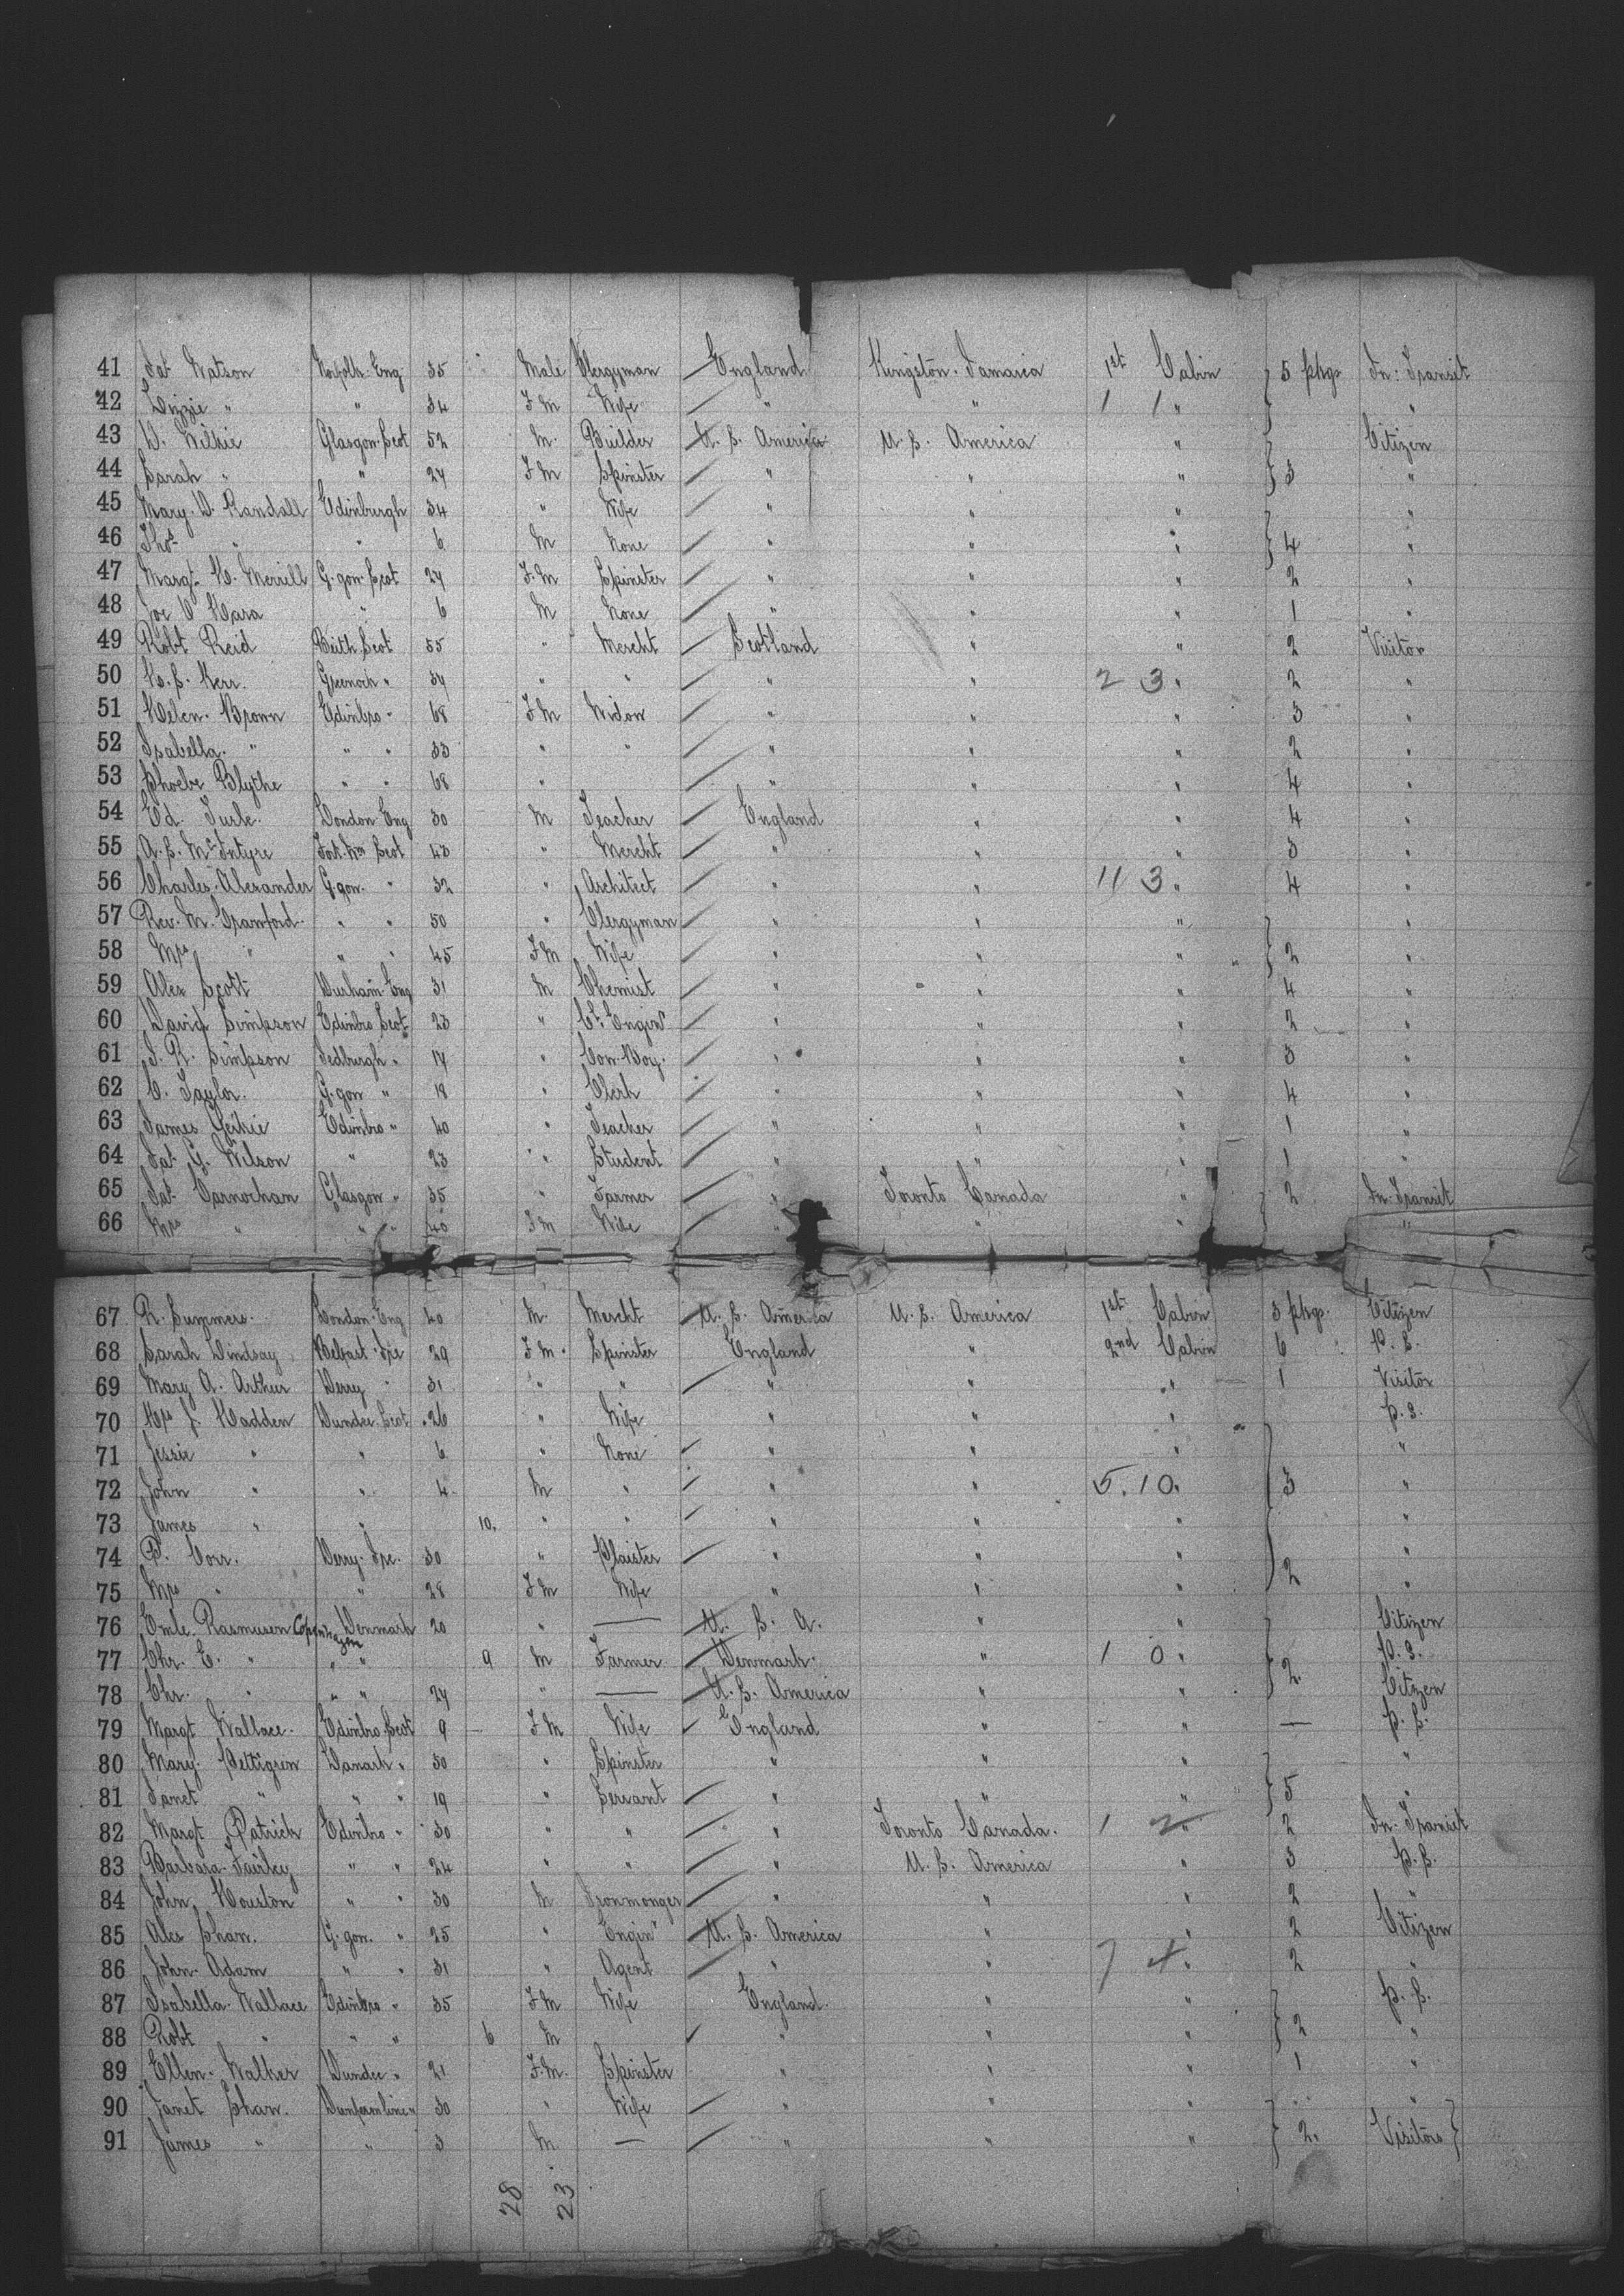 41 Jas Watson Norfolk Eng 35 Male Clergyman England Kingston. Jamaica 1st Cabin 5 pkgs In: Transit
42 Lizzie " " 34 F M Wife " " 1 1 " "
43 D. Wilkie Glasgow Scot 52 M. Builder U. S. America U. S. America " Citizen
44 Sarah " " 27 F M Spinster " " " 3 "
45 Mary. D. Randall Edinburgh 34 " Wife " " " "
46 Thos " " 6 M None " " " 4 "
47 Margt H. Merrill G.gow Scot 27 F.M Spinster " " " 2 "
48 Joe O'Hara " 6 M None " " " 1 "
49 Robt Reid Beith Scot 55 " Mercht Scotland " " 2 Visitor
50 H. S. Kerr. Greenock " 37 " " " " 2 3 " 2 "
51 Helen. Brown Edinbro " 68 F M Widow " " " 3 "
52 Isabella. " " " 33 " " " " " 2 "
53 Phoebe Blythe " " 68 " " " " 4 "
54 Ed. Turle. London Eng 30 M Teacher England " " 4 "
55 A. S. McIntyre Fort. Wm Scot 43 " Mercht " " " 3 "
56 Charles Alexander G.gow. " 32 " Architect " " 11 3 " 4 "
57 Rev. M. Crawford. " " 50 " Clergyman " " " "
58 Mrs " " " 45 F M Wife " " " 2 "
59 Alex Scott Durham Eng 31 M Chemist " " " 4 "
60 David Simpson Edinbro Scot 23 " Cl. Enginr " " " 2 "
61 J. R. Simpson Jedburgh " 17 " Cow. Boy. " " " 3 "
62 C. Taylor. G.gow " 18 " Clerk " " " 4 "
63 James Geikie Edinbro " 40 " Teacher " " " 1 "
64 Jas G. Wilson " 23 " Student " " " 1 "
65 Jas. Carnochan Glasgow " 35 " Farmer " Toronto Canada " 2 In-Transit
66 Mrs " " " 40 F M Wife " " " "
67 R. Summers. London. Eng 40 M. Mercht U. S. America U. S. America 1st Cabin 3 pkgs. Citizen
68 Sarah Lindsay Belfast. Ire 29 F M. Spinster England " 2nd Cabin 6 P. S.
69 Mary A. Arthur Derry " 31 " " " " " 1 Visitor
70 Mrs J. Hadden Dundee Scot 26 " Wife " " " P. S.
71 Jessie " " 6 " None " " " "
72 John " " 4 M " " " 5. 10. " 3 "
73 James " " 10. " " " " " "
74 P. Corr. Derry. Ire. 30 " Plaister " " " "
75 Mrs " " 28 F M Wife " " " 2 "
76 Emle. Rasmusen Copenhagen Denmark 20 " — U. S. A. " Citizen
77 Chr. E. " " " 9 M Farmer Denmark. " 1 0 " 2. P. S.
78 Chr. " " " 27 " — U. S. America " " Citizen
79 Margt Wallace. Edinbro Scot 9 F M Wife England " " — P. S.
80 Mary. Pettigrew Lanark " 30 " Spinster " " " "
81 Janet " " " 19 " Servant " " " 5 "
82 Margt Patrick Edinbro " 30 " " " Toronto Canada. 1 2 " 2 In-Transit
83 Barbara. Fairley " " 24 " " " U. S. America " 3 P. S.
84 John Houston " " 30 M Ironmonger " " " 2 "
85 Alex Shaw. G.gow. " 25 " Enginr U. S. America " " 2 Citizen
86 John. Adam " " 31 " Agent " " 7 4. 2 "
87 Isabella. Wallace Edinbro " 35 F M Wife England. " " P. S.
88 Robt " " " 6 M " " " 2 "
89 Ellen. Walker Dundee " 21 F.M. Spinster " " " 1 "
90 Janet Shaw. Dunfermline " 30 " Wife " " " "
91 James " " 3 M — " " " 2. Visitors
28 23.